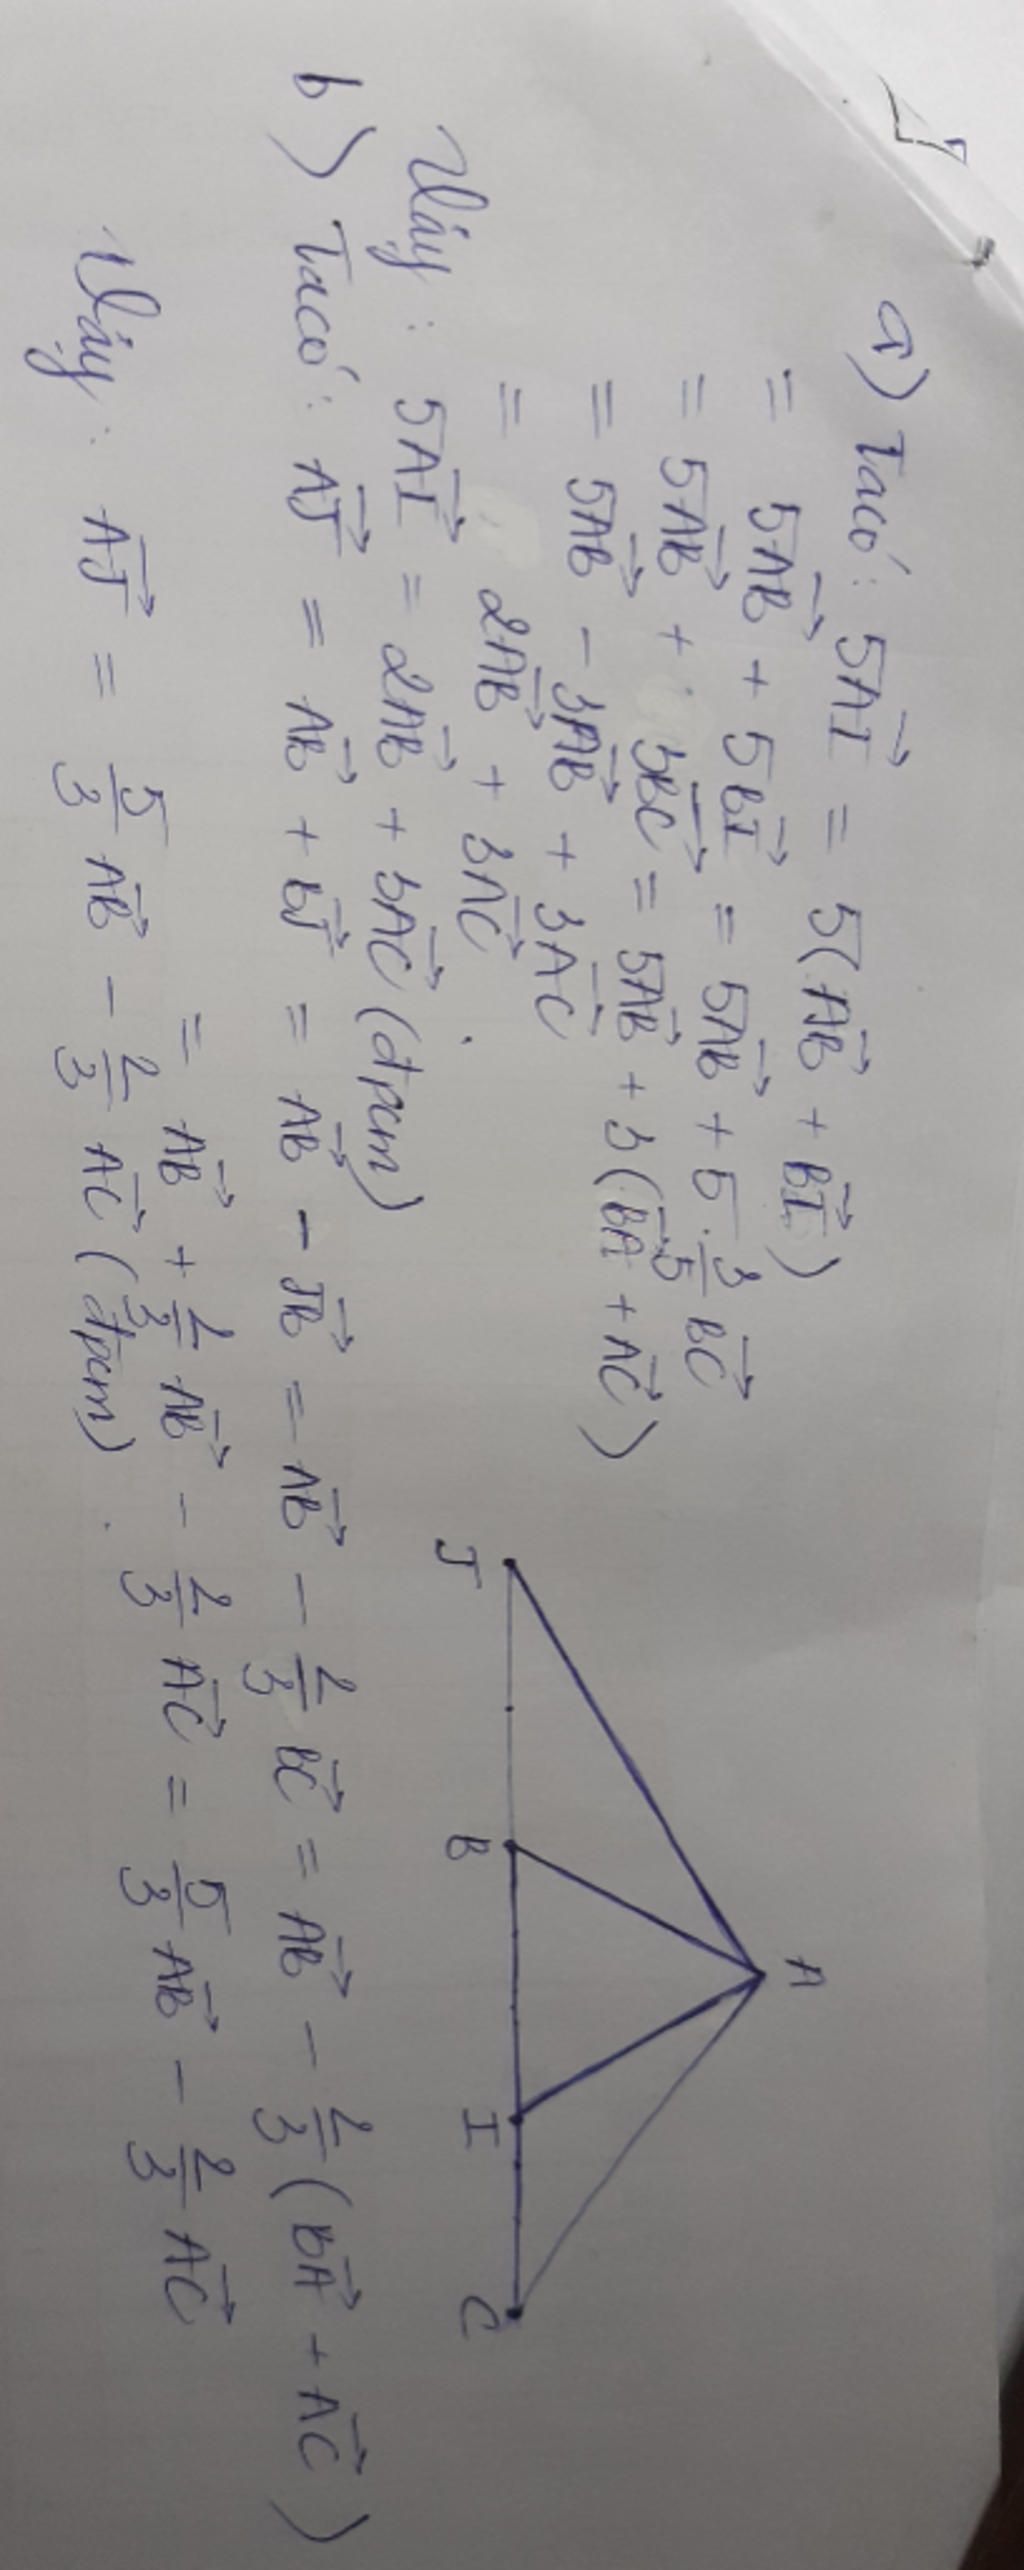 a) Ta có: 5AI⃗ = 5(AB⃗ + BI⃗)
= 5AB⃗ + 5BI⃗ = 5AB⃗ + 5.3/5 BC⃗
= 5AB⃗ + 3BC⃗ = 5AB⃗ + 3(BA⃗ + AC⃗)
= 5AB⃗ - 3AB⃗ + 3AC⃗
= 2AB⃗ + 3AC⃗.
Vậy: 5AI⃗ = 2AB⃗ + 3AC⃗ (đpcm)
A
J B I C
b) Ta có: AJ⃗ = AB⃗ + BJ⃗ = AB⃗ - JB⃗ = AB⃗ - 2/3 BC⃗ = AB⃗ - 2/3 (BA⃗ + AC⃗)
= AB⃗ + 2/3 AB⃗ - 2/3 AC⃗ = 5/3 AB⃗ - 2/3 AC⃗
Vậy: AJ⃗ = 5/3 AB⃗ - 2/3 AC⃗ (đpcm).